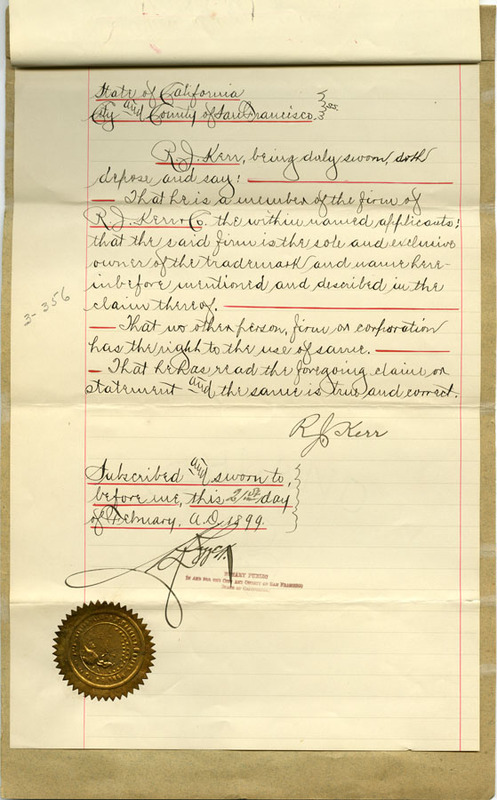 State of California
City and County of San Francisco. } ss.
R. J. Kerr, being duly sworn, doth
depose and say:
That he is a member of the firm of
R. J. Kerr & Co. the within named applicants;
that the said firm is the sole and exclusive
owner of the trademark and name here-
inbefore mentioned and described in the
claim thereof.
3-356
That no other person, firm or corporation
has the right to the use of same.
That he has read the foregoing claim or
statement and the same is true and correct.
R J Kerr
Subscribed and sworn to
before me, this 21st day
of February, A.D. 1899.
NOTARY PUBLIC
IN AND FOR THE CITY AND COUNTY OF SAN FRANCISCO
STATE OF CALIFORNIA